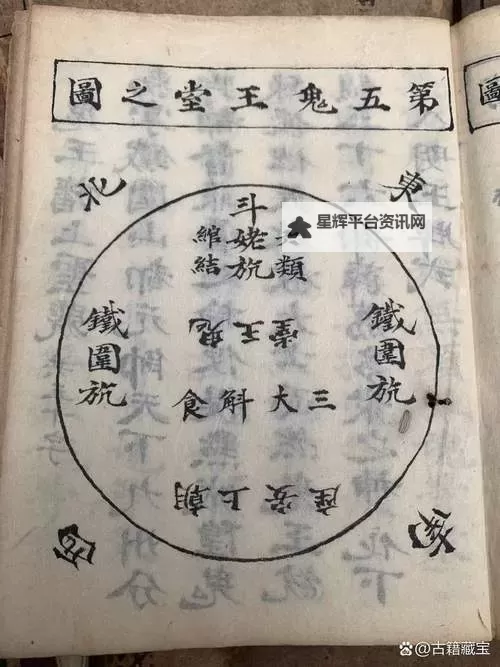 第五鬼王堂之圖
東
北
類
斗姥旐
綰結
鬼王堂
鐵圍旐
鐵圍旐
三大斛食
朝上安座
南
西
星辉平台资讯网
@古籍藏宝